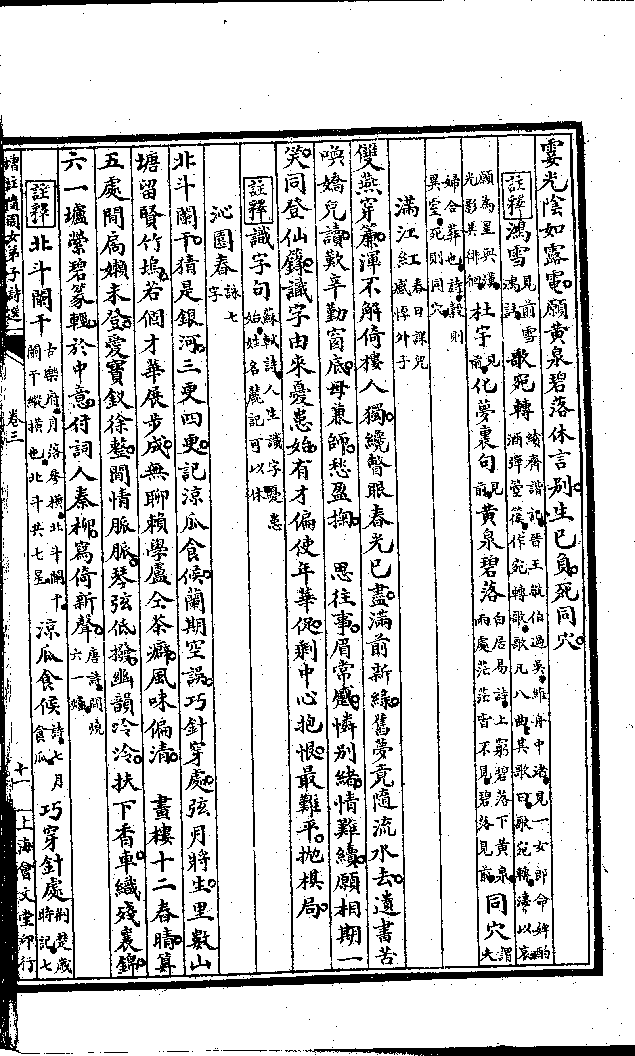 霎光陰如露電願黃泉碧落休言别生已負死同穴
註釋 鴻雪見前雪鴻註 歌宛轉續齊諧記晉王敬伯過吳維舟中渚見一女郎命婢酌酒彈箜篌作宛轉歌歌凡八曲其歌曰歌宛轉淒以哀
願為星與漢光影共徘徊 杜宇見前 化夢裏句見前 黃泉碧落白居易詩上窮碧落下黃泉兩處茫茫皆不見碧落見前 同穴謂夫
婦合葬也詩穀則異室死則同穴
滿江紅春日課兒感悼外子
雙燕穿簾渾不解倚樓人獨繞瞥眼春光已盡滿前新綠舊夢竟隨流水去遺書苦
喚嬌兒讀歎辛勤窗底母兼師愁盈掬 思往事眉常蹙憐别緒情難續願相期一
笑同登仙籙識字由來憂患始有才偏使年華促剩中心抱恨最難平拋棋局
註釋 識字句蘇軾詩人生識字憂患始姓名麄記可以休
沁園春詠七字
北斗闌干猜是銀河三更四更記涼瓜食候蘭期空誤巧針穿處弦月將生里數山
塘留賢竹塢若個才華展步成無聊賴學盧仝茶癖風味偏清 畫樓十二春晴算
五處開扃嬾未登愛寶釵徐整閒情脈脈琴弦低撥幽韻泠泠扶下香車織殘裏錦
六一爐縈碧篆輕於中意付詞人秦柳寫倚新聲唐詩閒燒六一爐
註釋 北斗闌干古樂府月落參橫北斗闌干闌干縱橫也北斗共七星 涼瓜食候詩七月食瓜 巧穿針處荆楚歲時記七
增註隨園女弟子詩選 卷三 十一 上海會文堂印行